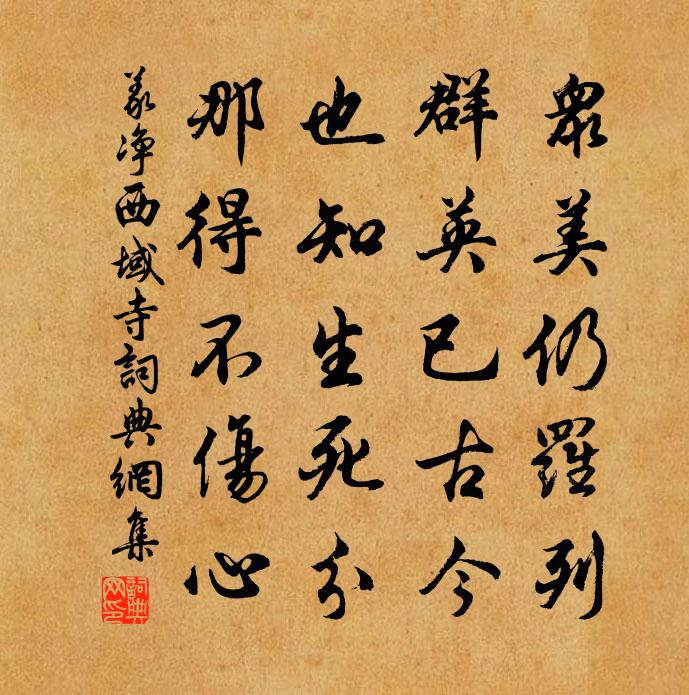 眾美仍羅列
群英已古今
也知生死分
那得不傷心
義净西域寺詞典網集
詞典網印